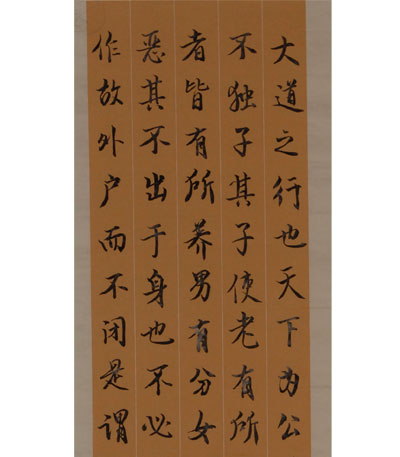 大道之行也天下为公
不独子其子使老有所
者皆有所养男有分女
恶其不出于身也不必
作故外户而不闭是谓